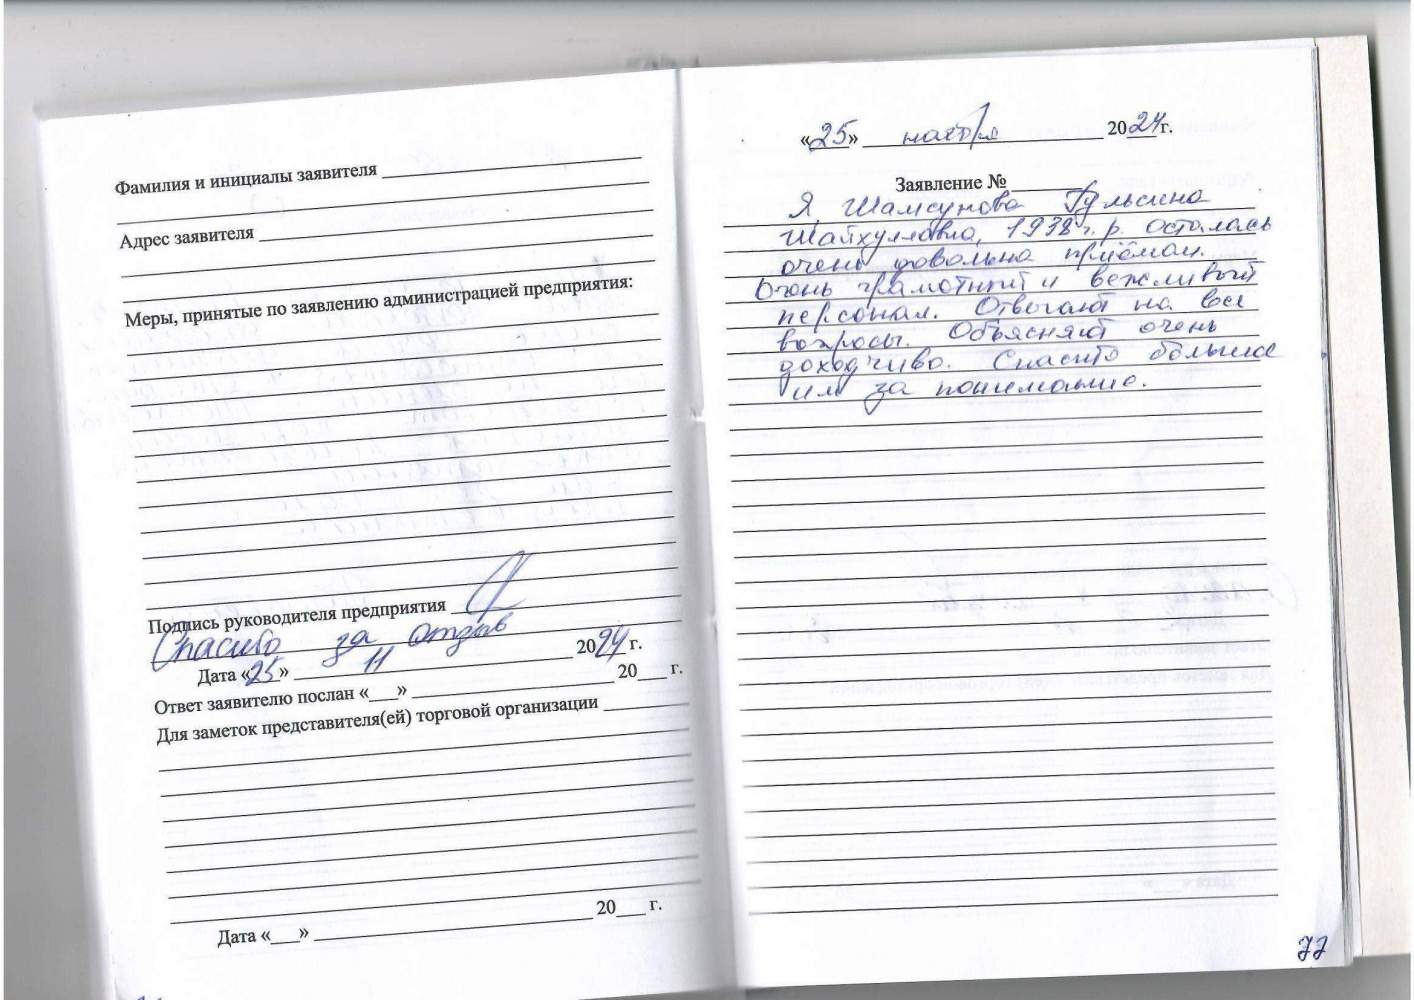 Фамилия и инициалы заявителя
Адрес заявителя
Меры, принятые по заявлению администрацией предприятия:
Подпись руководителя предприятия
Спасибо за отзыв
Дата «25» 11 2024 г.
Ответ заявителю послан «___» 20___ г.
Для заметок представителя(ей) торговой организации
Дата «___» 20___ г.
«25» ноября 2024 г.
Заявление №
Я, Шамсунова Гульсина
Шайхулловна, 1938 г.р. осталась
очень довольна приёмом.
Очень грамотный и вежливый
персонал. Отвечают на все
вопросы. Объясняют очень
доходчиво. Спасибо большое
им за понимание.
77